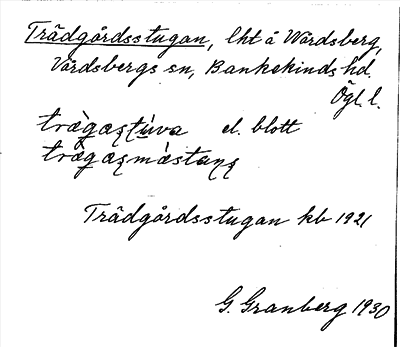 Trädgårdsstugan, lht å Vårdsberg,
Vårdsbergs sn, Bankekinds hd.
Ögl. l.
el. blott
Trädgårdsstugan kb 1921
G. Granberg 1930